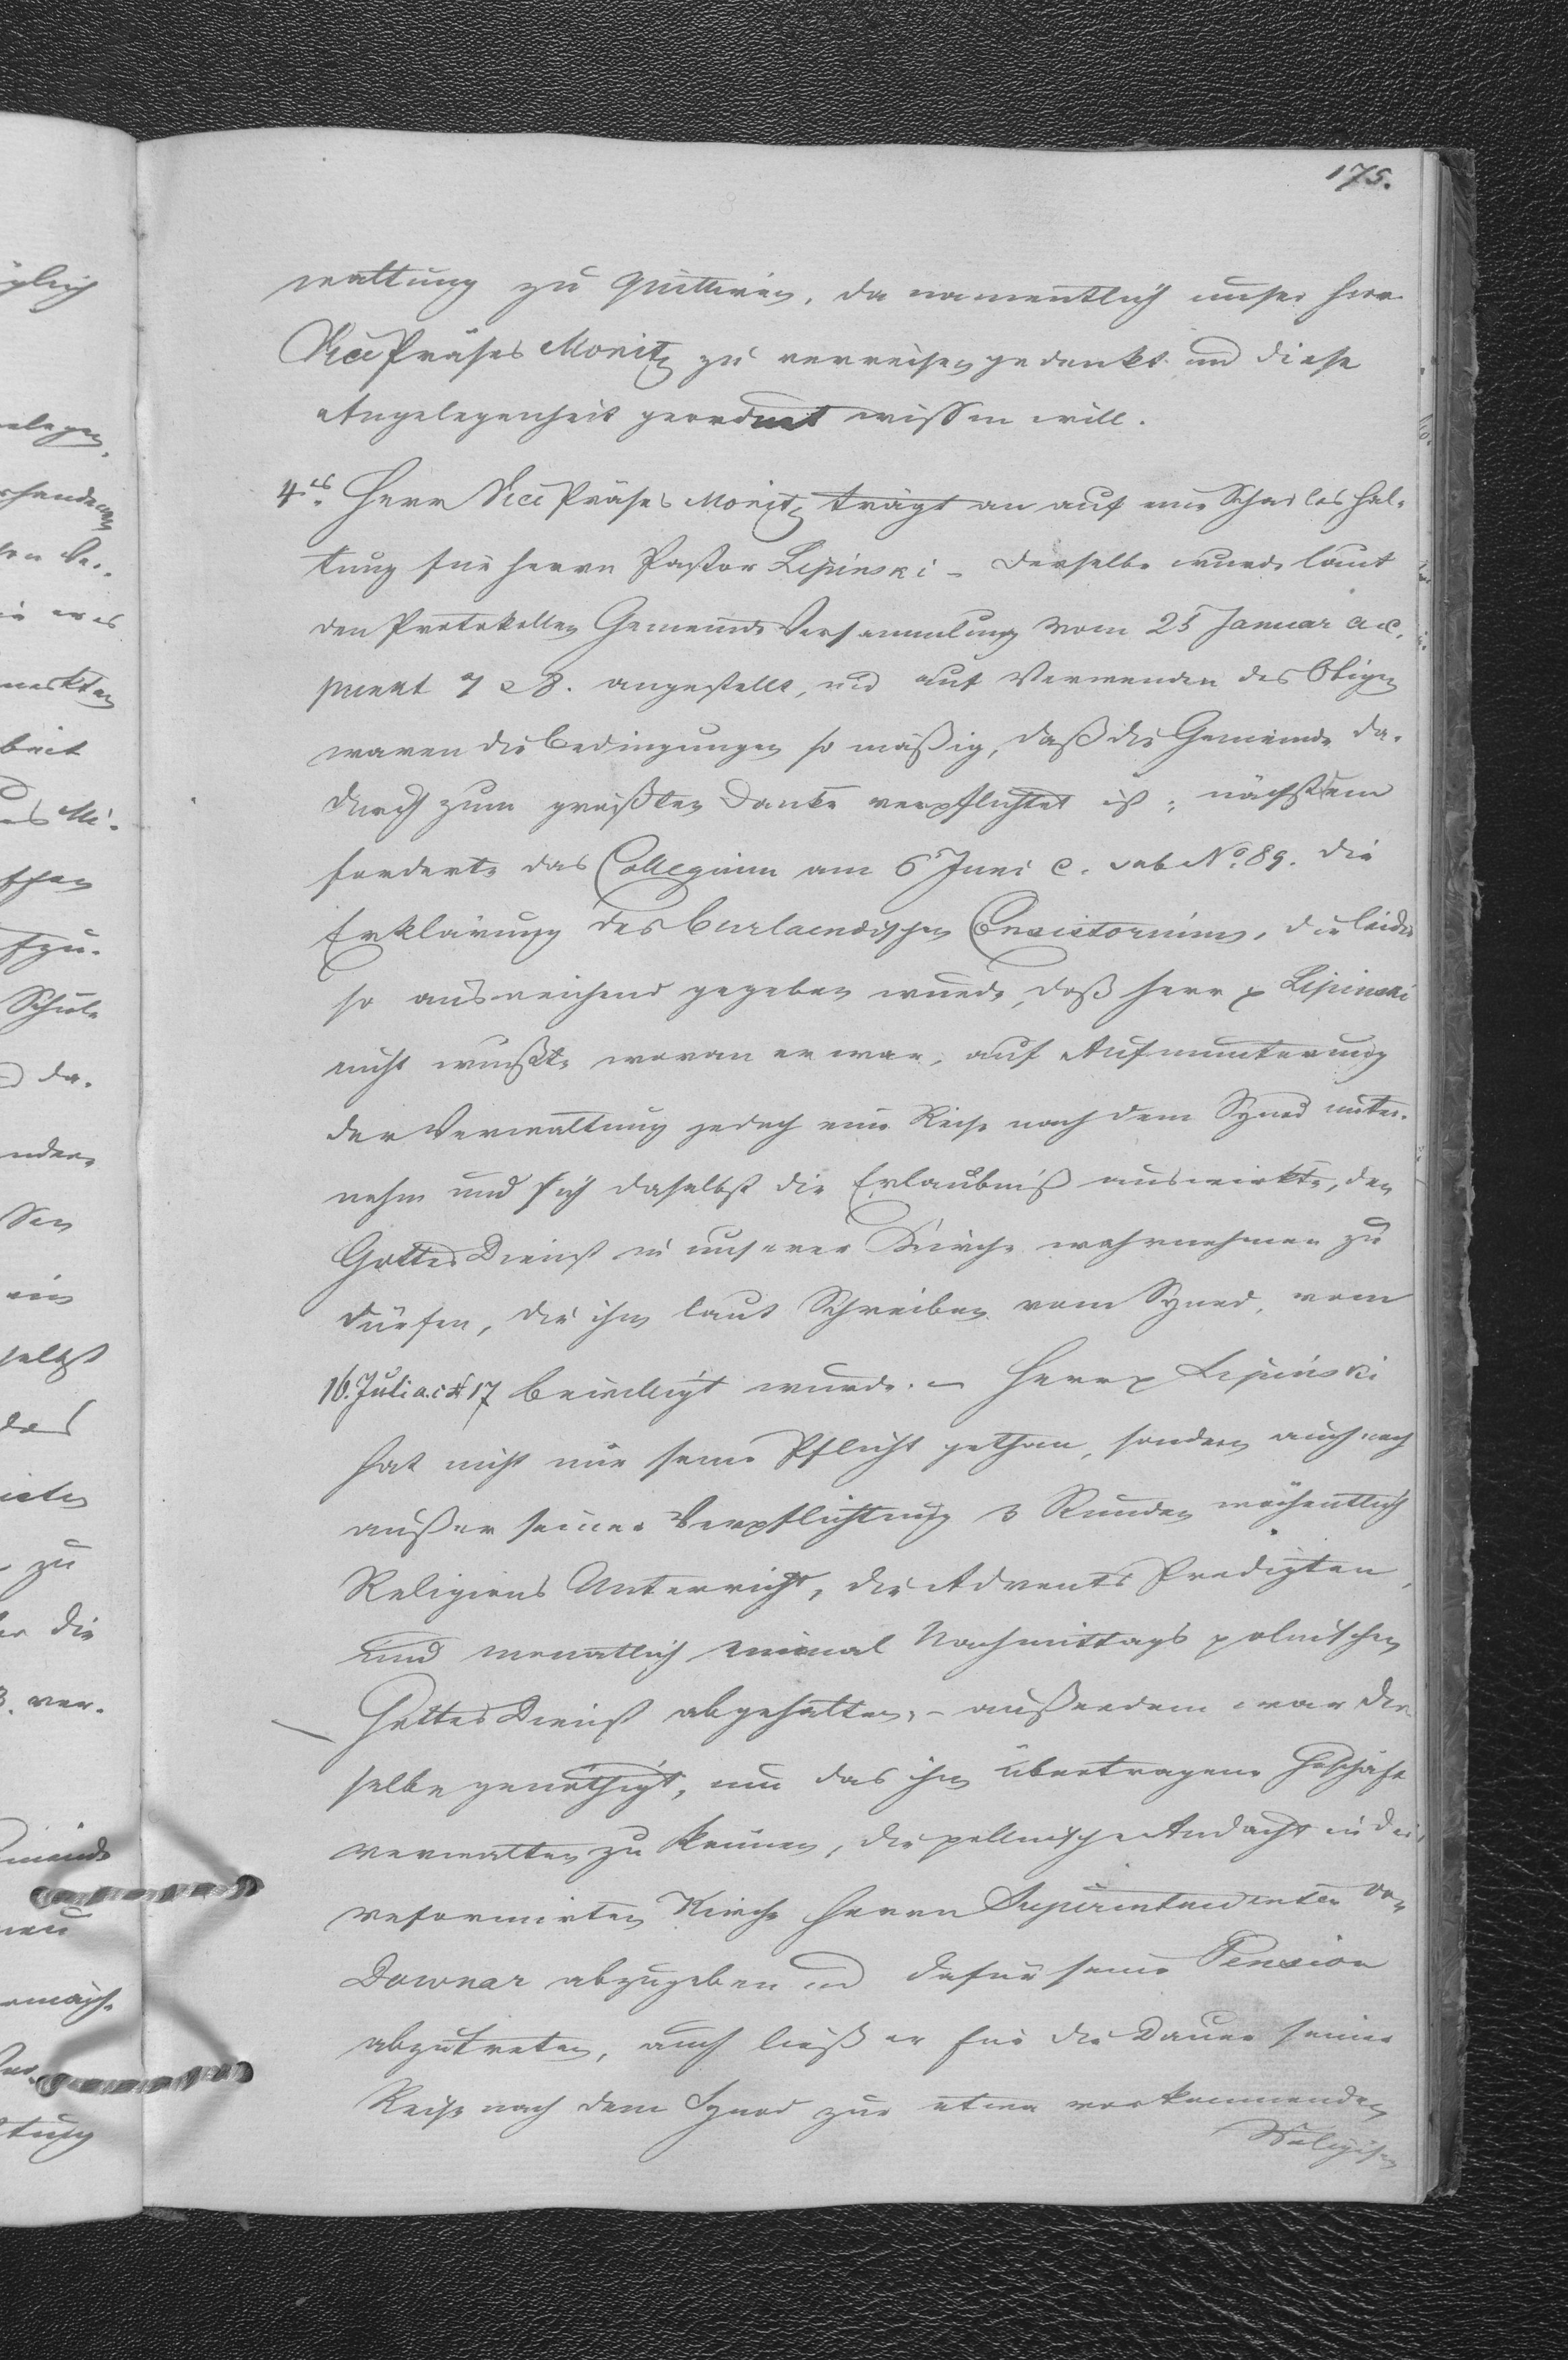 175.
waltung zu quittiren, da namentlich unser Herr
Vice Präses Moritz zu verreisen gedenkt und diese
Angelegenheit geordnet wissen will.
4tes Herr Vice Präses Moritz trägt an auf eine Schadloshal-
tung für Herrn Pastor Lipinski – Derselbe wurde laut
den Protokollen Gemeinde Versammlung vom 25 Januar a.c.
punkt 7 & 8. angestellt, und auf Verwenden des Obigen
waren die Bedingungen so mäßig, daß die Gemeinde da-
durch zum größten Danke verpflichtet ist; nächstdem
forderte das Collegium am 6 Juni c. sub No. 89. die
Erklärung des Curlaendischen Consistoriums, die leider
so ausweichend gegeben wurde, daß Herr p Lipinski
nicht wußte woran er war, auf Aufmunterung
der Verwaltung jedoch eine Reise nach dem Synod unter-
nahm und sich daselbst die Erlaubniß auswirkte, den
Gottes Dienst in unserer Kirche wahrnehmen zu
dürfen, die ihm laut Schreiben vom Synod, vom
16. Juli a.c # 17 bewilligt wurde. – Herr p Lipinski
hat nicht nur seine Pflicht gethan, sondern auch noch
außer seiner Verpflichtung 3 Stunden wöchentlich
Religions Unterricht, die Advents Predigten,
und monatlich einmal Nachmittags polnischen
Gottes Dienst abgehalten, – außerdem war der-
selbe genöthigt, um das ihm übertragene Geschäft
verwalten zu können, die pollnische Andacht in der
reformirten Kirche Herrn Superintendenten von
Downar abzugeben und dafür seine Pension
abzutreten, auch ließ er für die Dauer seiner
Reise nach dem Synod zur etwa vorkommenden